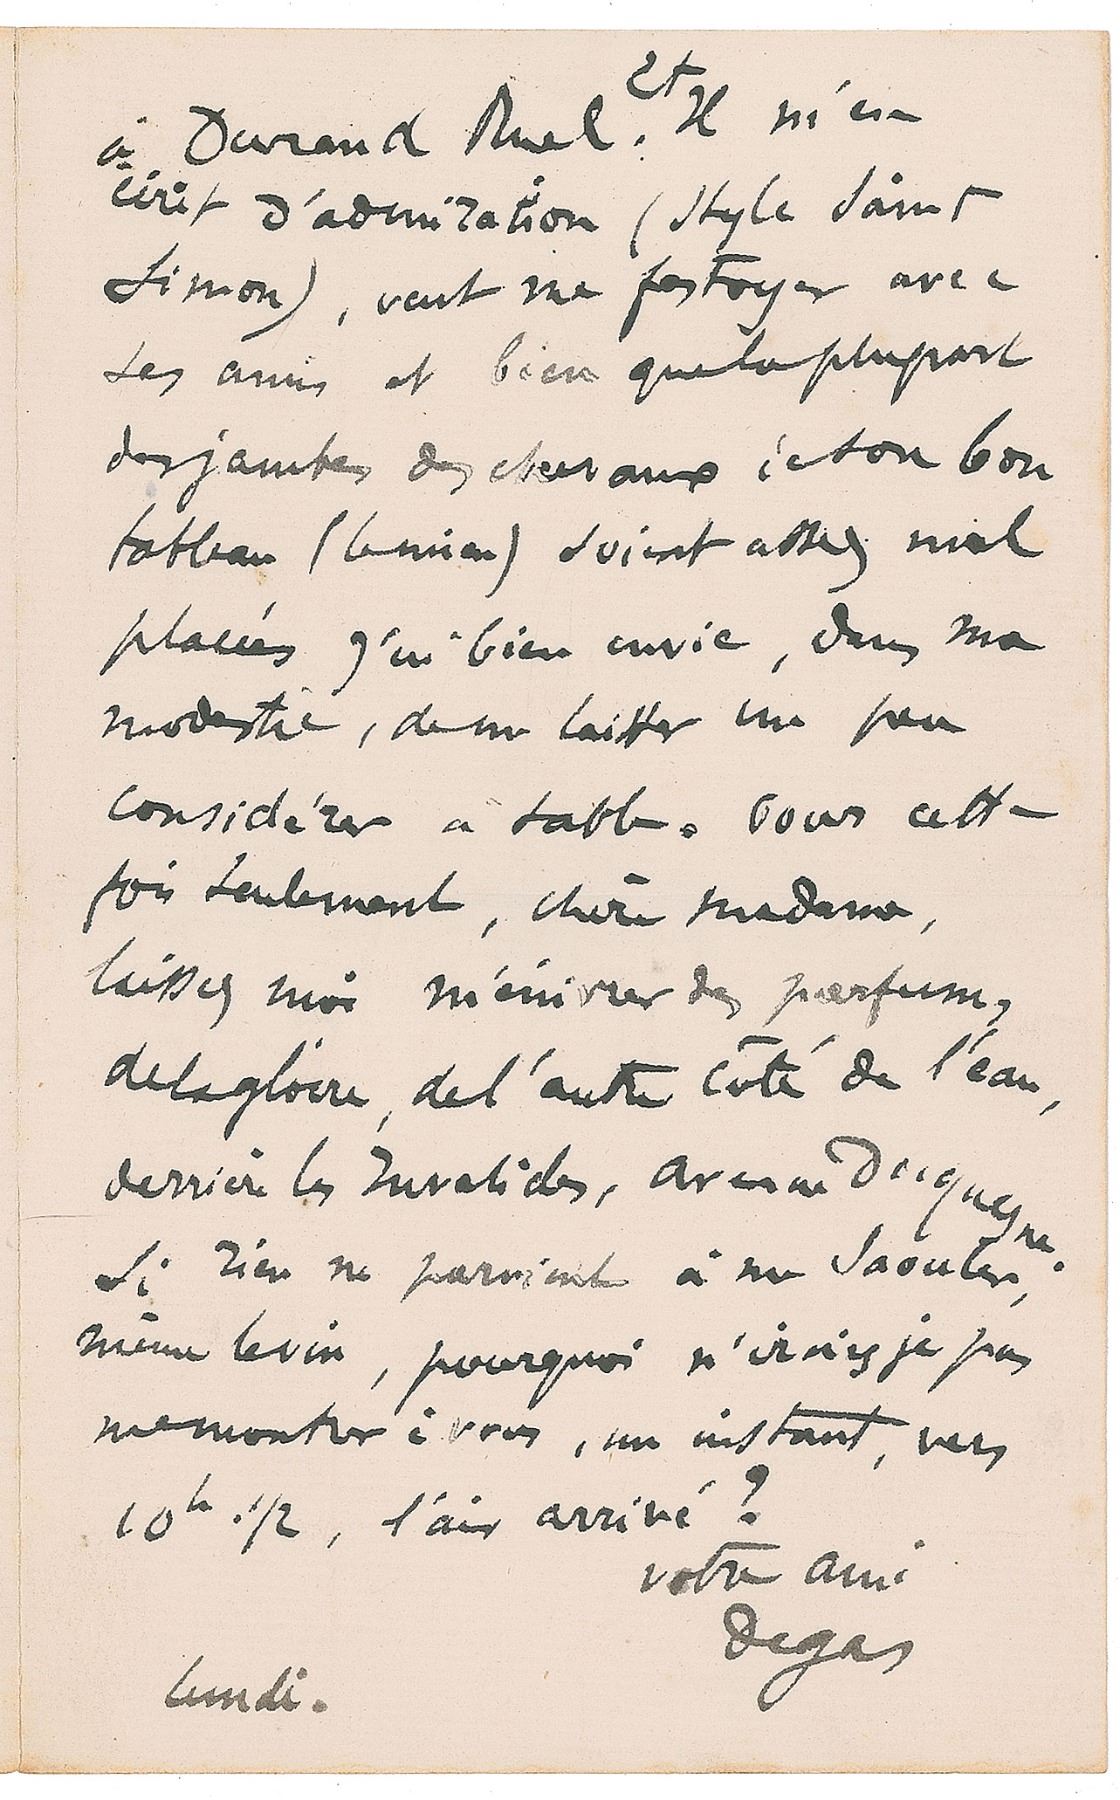 à Durand Ruel. Et Il m'en
écrit d'admiration (style Saint
Simon), veut me festoyer avec
ses amis et bien que la plupart
des jambes des chevaux de son bon
tableau (le mien) soient assez mal
placées j'ai bien envie, dans ma
modestie, de me laisser un peu
considérer à table. Pour cette
fois seulement, chère madame,
laissez moi m'énivrer des parfums
de la gloire, de l'autre côté de l'eau,
derrière les Invalides, avenue Duquesne.
Si rien ne parvient à me saouler,
même le vin, pourquoi n'irais je pas
me montrer à vous, un instant, vers
10h 1/2, l'air arrivé?
votre ami
Degas
lundi.